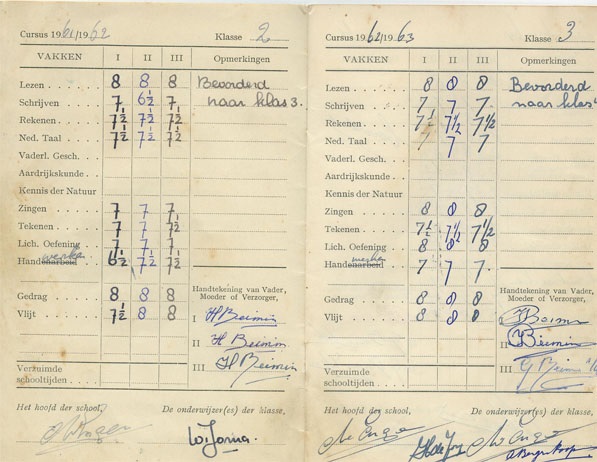 Cursus 1961/1962 Klasse 2
VAKKEN I II III Opmerkingen
Lezen 8 8 8 Bevorderd
Schrijven 7 6½ 7 naar klas 3.
Rekenen 7½ 7½ 7½
Ned. Taal 7½ 7½ 7½
Vaderl. Gesch.
Aardrijkskunde
Kennis der Natuur
Zingen 7 7 7
Tekenen 7 7 7½
Lich. Oefening 7 7 7½
Handenarbeid werken 6½ 7½ 7½
Gedrag 8 8 8
Vlijt 7½ 8 8
Handtekening van Vader,
Moeder of Verzorger,
I H Beimin
II H Beimin
III H Beimin
Verzuimde
schooltijden
Het hoofd der school, De onderwijzer(es) der klasse,
Cursus 1962/1963 Klasse 3
VAKKEN I II III Opmerkingen
Lezen 8 8 8 Bevorderd
Schrijven 7 7 7 naar klas
Rekenen 7½ 7½ 7½
Ned. Taal 7 7 7
Vaderl. Gesch.
Aardrijkskunde
Kennis der Natuur
Zingen 8 8 8
Tekenen 7½ 7½ 7½
Lich. Oefening 8 8 8
Handenarbeid werken 7 7 7
Gedrag 8 8 8
Vlijt 8 8 8
Handtekening van Vader,
Moeder of Verzorger,
I Beimin
II Beimin
III Beimin
Verzuimde
schooltijden
Het hoofd der school, De onderwijzer(es) der klasse,